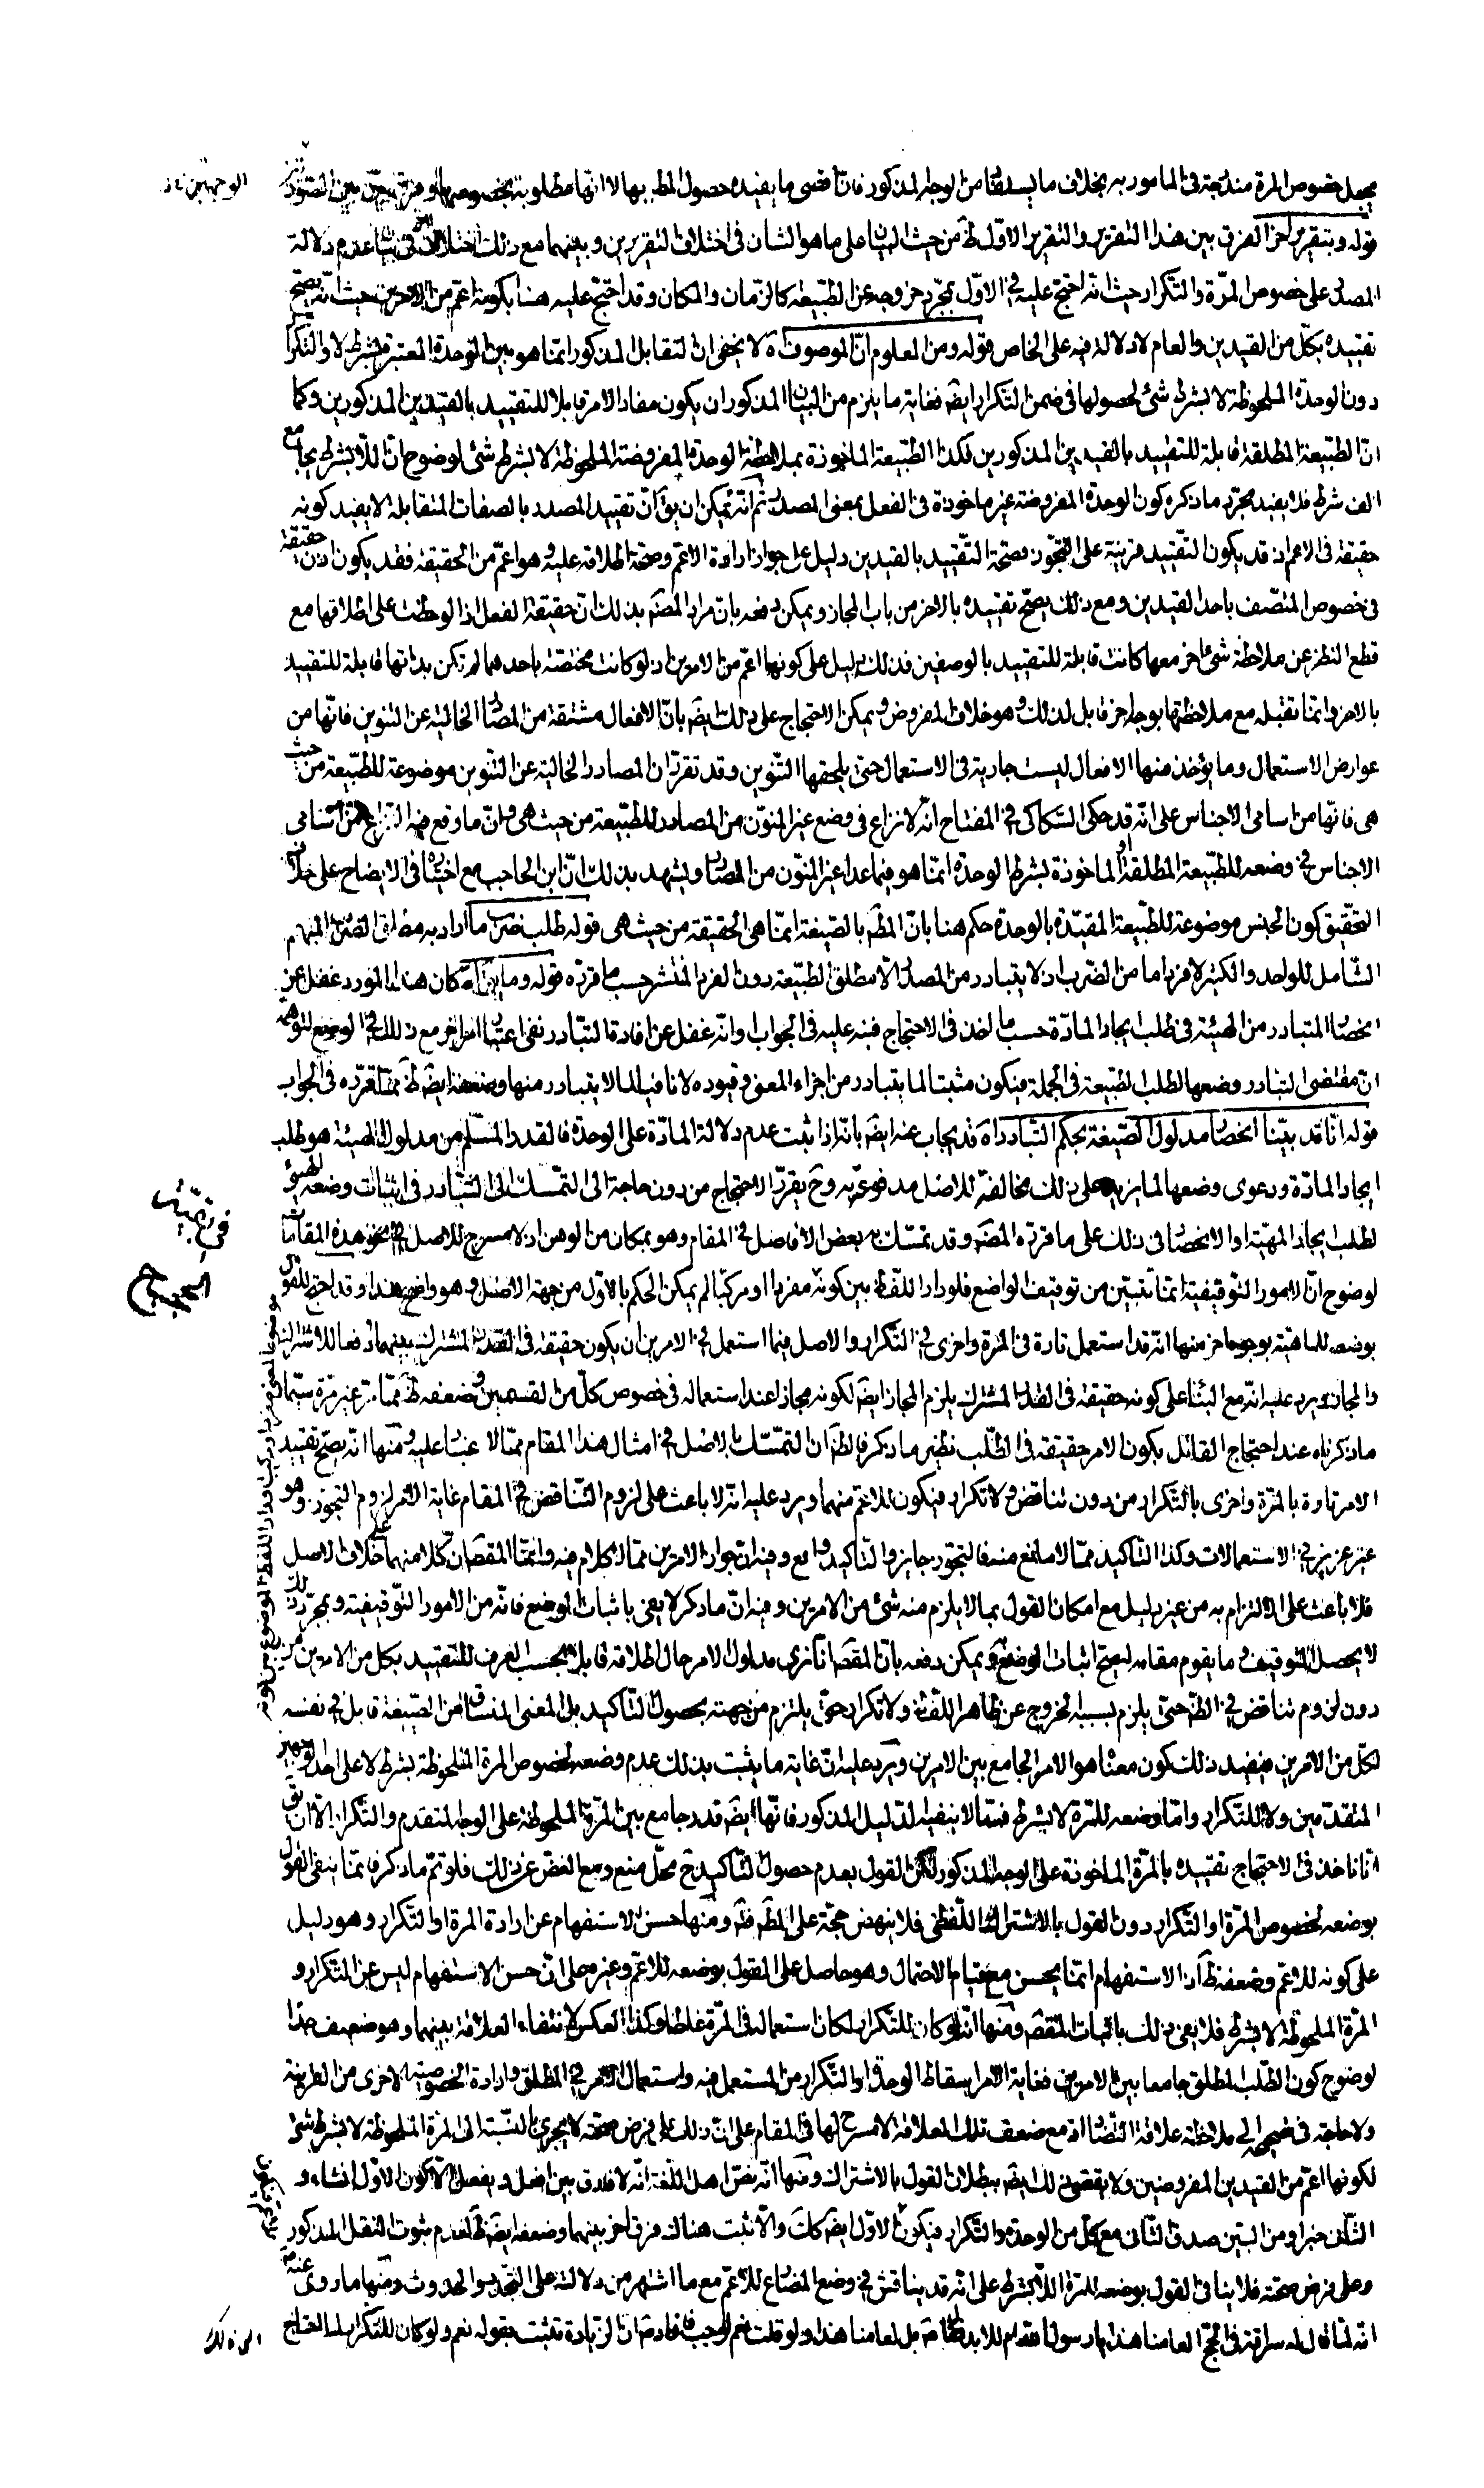 يجعل خصوص المرة مندرجة في المامور به بخلاف ما يستفاد من الوجه المذكور فان اقصى ما يفيده حصول المط بها لا انها مطلوبة بخصوصها
قوله وبتقرير اخر الفرق بين هذا التقرير والتقرير الاول ظ من حيث البيان على ما هو الشان في اختلاف التقريرين وبينهما مع ذلك اختلاف في بيان عدم دلالة
المصدر على خصوص المرة والتكرار حيث انه احتج عليه في الاول بمجرد خروجه عن الطبيعة كالزمان والمكان وقد احتج عليه هنا بكونه اعم من الامرين حيث انه يصح
تقييده بكل من القيدين والعام لا دلالة فيه على الخاص قوله ومن المعلوم ان الموصوف اه لا يخفى ان التقابل المذكور انما هو بين الوحدة المعتبرة بشرط لا والتكرار
دون الوحدة الملحوظة لا بشرط شئ لحصولها في ضمن التكرار ايضا فغاية ما يلزم من البيان المذكور ان يكون مفاد الامر قابلا للتقييد بالقيدين المذكورين وكما
ان الطبيعة المطلقة قابلة للتقييد بالقيدين المذكورين فكذا الطبيعة الماخوذة بملاحظة الوحدة المفروضة الملحوظة لا بشرط شئ لوضوح ان اللا بشرط يجامع
الف شرط فلا يفيد مجرد ما ذكره كون الوحدة المفروضة غير ماخوذة في الفعل بمعنى المصدر ثم انه يمكن ان يق ان تقييد المصدر بالصفات المتقابلة لا يفيد كونه
حقيقة في الاعم اذ قد يكون التقييد قرينة على التجوز فصحة التقييد بالقيدين دليل على جواز ارادة الاعم وصحة اطلاقه عليه وهو اعم من الحقيقة فقد يكون اذن حقيقة
في خصوص المتصف باحد القيدين ومع ذلك يصح تقييده بالاخر من باب المجاز ويمكن دفعه بان مراد المصنف بذلك ان حقيقة الفعل اذا لوحظت على اطلاقها مع
قطع النظر عن ملاحظة شئ اخر معها كانت قابلة للتقييد بالوصفين فذلك دليل على كونها اعم من الامرين اذ لو كانت مختصة باحدهما لم تكن بذاتها قابلة للتقييد
بالاخر وانما تقبله مع ملاحظتها بوجه اخر قابل لذلك وهو خلاف المفروض ويمكن الاحتجاج على ذلك ايضا بان الافعال مشتقة من المصادر الخالية عن التنوين فانها من
عوارض الاستعمال وما يؤخذ منها الافعال ليست جارية في الاستعمال حتى يلحقها التنوين وقد تقرر ان المصادر الخالية عن التنوين موضوعة للطبيعة من حيث
هي فانها من اسامي الاجناس على انه قد حكى السكاكي في المفتاح انه لا نزاع في وضع غير المنون من المصادر للطبيعة من حيث هي وان ما وقع فيه النزاع من اسامي
الاجناس في وضعه للطبيعة المطلقة او الماخوذة بشرط الوحدة انما هو فيما عدا غير المنون من المصادر ويشهد بذلك ان ابن الحاجب مع اختياره في الايضاح على خلاف
التحقيق كون الجنس موضوعة للطبيعة المقيدة بالوحدة حكم هنا بان المط بالصيغة انما هي الحقيقة من حيث هي قوله طلب ضرب ما اراد به مطلق الضرب المبهم
الشامل للواحد والكثير لا فردا ما من الضرب اذ لا يتبادر من المصدر الا مطلق الطبيعة دون الفرد المنتشر حسب ما قرره قوله وما يق اه كان هذا المورد غفل عن
انحصار المتبادر من الهيئة في طلب ايجاد المادة حسب ما اخذ في الاحتجاج فنبه عليه في الجواب وانه غفل عن افادة التبادر نفي اعتبار امر اخر مع ذلك في الوضع لتوهمه
ان مقتضى التبادر وضعها لطلب الطبيعة في الجملة فيكون مثبتا لما يتبادر من اجزاء المعنى وقيوده لا نافيا لما لا يتبادر منها وضعفه ايضا ظ مما قرره في الجواب
قوله انا قد بينا انحصار مدلول الصيغة بحكم التبادر اه قد يجاب عنه ايضا بانه اذا ثبت عدم دلالة المادة على الوحدة فالقدر المسلم من مدلول الهيئة هو طلب
ايجاد المادة ودعوى وضعها لما يزيد على ذلك مخالفة للاصل مدفوعة به وح يقرر الاحتجاج من دون حاجة الى التمسك الى التبادر في اثبات وضعه الهيئ
لطلب ايجاد المهية او الانحصار في ذلك على ما قرره المصنف وقد تمسك به بعض الافاضل في المقام وهو بمكان من الوهن اذ لا مسرح للاصل في نحو هذه المقامات
لوضوح ان الامور التوقيفية انما تتبين من توقيف الواضع فلو دار اللفظ بين كونه مفردا او مركبا لم يمكن الحكم بالاول من جهة الاصل وهو واضح هذا وقد احتج للقول
بوضعه للماهية بوجوه اخر منها انه قد استعمل تارة في المرة واخرى في التكرار والاصل فيما استعمل في الامرين ان يكون حقيقة في القدر المشترك بينهما دفعا للاشتراك
والمجاز ويرد عليه انه مع البناء على كونه حقيقة في القدر المشترك يلزم المجاز ايضا لكونه مجازا عند استعماله في خصوص كل من القسمين وضعفه ظ مما مر غير مرة سيما
ما ذكرناه عند احتجاج القائل بكون الامر حقيقة في الطلب نظير ما ذكر فالظ ان التمسك بالاصل في امثال هذا المقام مما لا غبار عليه ومنها انه يصح تقييد
الامر تارة بالمرة واخرى بالتكرار من دون تناقض ولا تكرار فيكون للاعم منهما ويرد عليه انه لا باعث على لزوم التناقض في المقام غاية الامر لزوم التجوز وهو
غير عزيز في الاستعمالات وكذا التاكيد مما لا مانع منه فالتجوز جايز والتاكيد واقع وفيه ان جواز الامرين مما لا كلام فيه وانما المقصود ان كلا منهما على خلاف الاصل
فلا باعث على الالتزام به من غير دليل مع امكان القول بما لا يلزم منه شئ من الامرين وفيه ان ما ذكر لا يفى باثبات الوضع فانه من الامور التوقيفية وبمجرد ذلك
لا يحصل التوقيف وما يقوم مقامه ليصح اثبات الوضع ويمكن دفعه بان المقصود انا نرى مدلول الامر حال اطلاقه قابلا بحسب العرف للتقييد بكل من الامرين من
دون لزوم تناقض في الظ حتى يلزم بسببه الخروج عن ظاهر اللفظ ولا تكرار حتى يلتزم من جهته بحصول التاكيد بل المعنى المنساق من الصيغة قابل في نفسه
لكل من الامرين فيفيد ذلك كون معناه هو الامر الجامع بين الامرين ويرد عليه ان غاية ما يثبت بذلك عدم وضعه لخصوص المرة الملحوظة بشرط لا على احد الوجهين
المتقدمين ولا للتكرار واما وضعه للمرة لا بشرط فمما لا ينفيه الدليل المذكور فانها ايضا قدر جامع بين المرة الملحوظة على الوجه المتقدم والتكرار الا ان يق
انا ناخذ في الاحتجاج تقييده بالمرة الماخوذة على الوجه المذكور لكن القول بعدم حصول التاكيد ح محل منع ومع الغض عن ذلك فلو تم ما ذكر فانما ينفي القول
بوضعه لخصوص المرة او التكرار دون القول بالاشتراك اللفظي فلا ينهض حجة على المط فته ومنها حسن الاستفهام عن ارادة المرة او التكرار وهو دليل
على كونه للاعم وضعفه ظ اذ الاستفهام انما يحسن مع قيام الاحتمال وهو حاصل على القول بوضعه للاعم وغيره على ان حسن الاستفهام ليس عن التكرار و
المرة الملحوظة لا بشرط فلا يفى ذلك باثبات المقصود ومنها انه لو كان للتكرار لكان استعماله في المرة غلطا وكذا العكس لانتفاء العلاقة بينهما وهو ضعيف جدا
لوضوح كون الطلب المطلق جامعا بين الامرين فغاية الامر اسقاط الوحدة او التكرار من المستعمل فيه واستعمال الامر في المطلق وارادة الخصوصية الاخرى من القرينة
ولا حاجة في تصحيحه الى ملاحظة علاقة التضاد اذ مع ضعف تلك العلاقة لا مسرح لها في المقام على ان ذلك على فرض صحته لا يجري بالنسبة الى المرة الملحوظة لا بشرط شئ
لكونها اعم من القيدين المفروضين ولا يقضى ذلك ايضا ببطلان القول بالاشتراك ومنها انه نص اهل اللغة انه لا فرق بين افعل ويفعل الا كون الاول انشاء و
الثاني خبرا ومن البين صدق الثاني مع كل من الوحدة والتكرار فيكون الاول ايضا كك والا ثبت هناك فرق اخر بينهما وضعفه ايضا ظ لعدم ثبوت النقل المذكور
وعلى فرض صحته فلا ينافي القول بوضعه للمرة اللا بشرط على انه قد يناقش في وضع المضارع للاعم مع ما اشتهر من دلالته على التجدد والحدوث ومنها ما روى عنه
انه لما قال له سراقة في الحج العامنا هذا يا رسول الله ام للابد فقال بل لعامنا هذا ولو قلت نعم لوجب فافاد ان الزيادة تثبت بقوله نعم ولو كان للتكرار لما احتاج